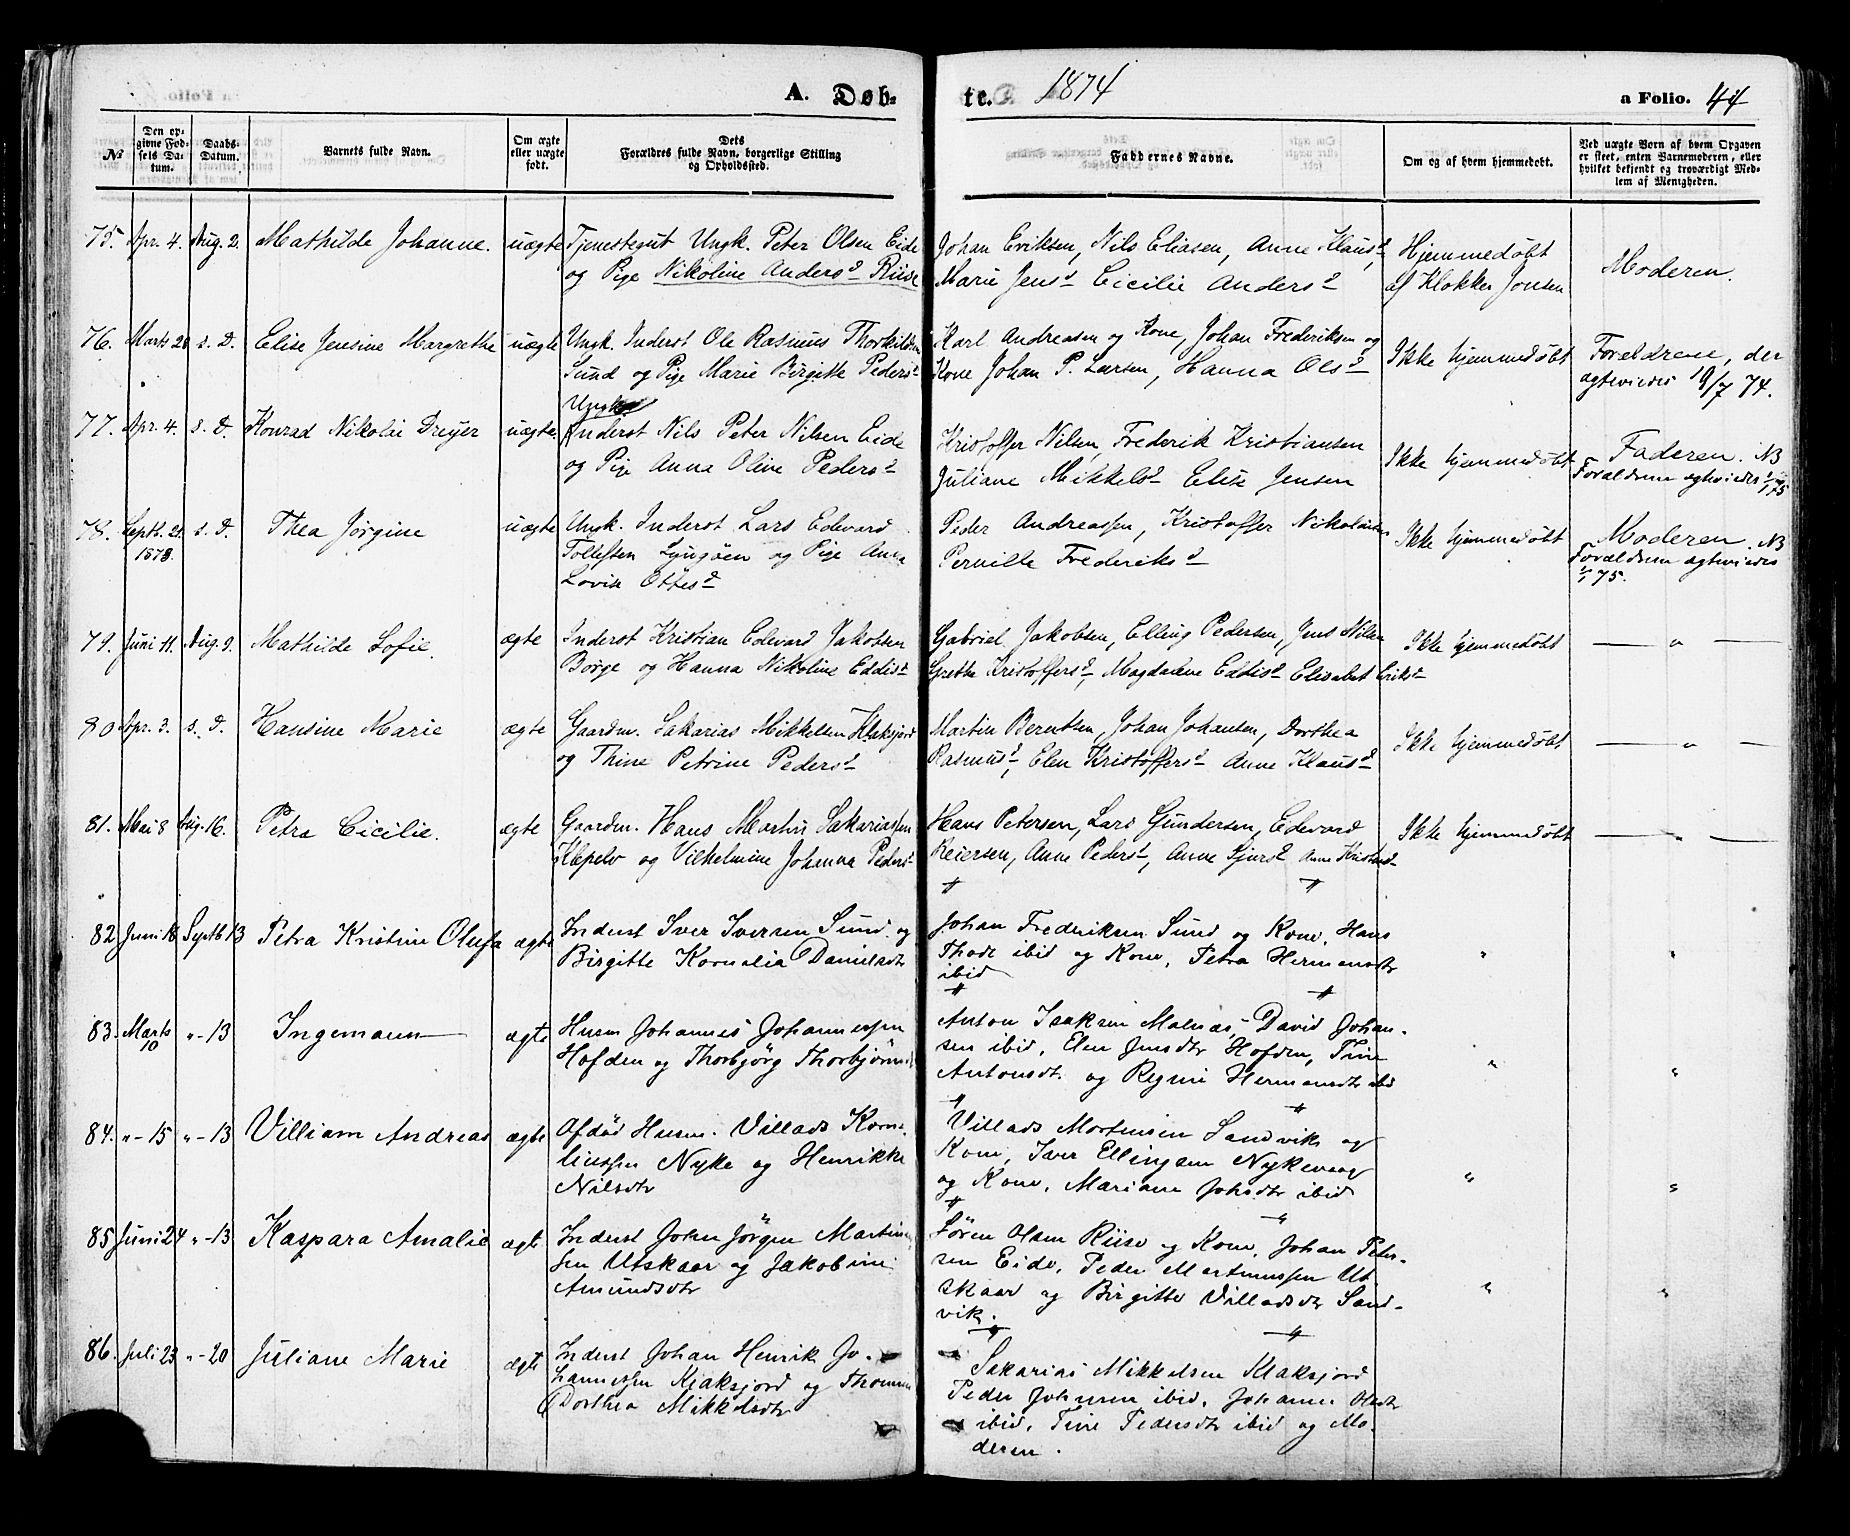 A. Døb-
te. 1874
a Folio. 44
№
Den op-
givne Fød-
sels Da-
tum.
Daabs-
Datum.
Barnets fulde Navn.
Om ægte
eller uægte
født.
Dets
Forældres fulde Navn, borgerlige Stilling
og Opholdssted.
Faddernes Navne.
Om og af hvem hjemmedøbt.
Ved uægte Børn af hvem Opgaven
er skeet, enten Barnemoderen, eller
hvilket bekjendt og troværdigt Med-
lem af Menigheden.
75. Apr. 4. Aug. 2. Mathilde Johanne. uægte Tjenestegut Ungk. Peter Olsen Eide
og Pige Nikoline Andersd Riise
Johan Eriksen, Nils Eliasen, Anne Klausd,
Marie Jensd Cicilie Andersd
Hjemmedøbt
af Klokker Jensen
Moderen.
76. Marts 20 s. D. Elise Jensine Margrethe uægte Ungk. Inderst Ole Rasmus Thorkildsen
Sund og Pige Marie Birgitte Pedersd
Karl Andreasen og Kone, Johan Frederiksen og
Kone Johan P. Larsen, Hanna Olsd
Ikke hjemmedøbt
Forældrene, der
ægteviedes 19/7 74.
77. Apr. 4. s. D. Konrad Nikolai Dreyer uægte Ungk.
Inderst Nils Peter Nilsen Eide
og Pige Anna Oline Pedersd
Kristoffer Nilsen, Frederik Kristiansen
Juliane Mikkelsd Elise Jensen
Ikke hjemmedøbt
Faderen. NB
Forældrene ægteviedes 1/1 75
78. Septb. 21. 1873. s. D. Thea Jørgine uægte Ungk. Inderst Lars Edevard
Tollefsen Lyngøen og Pige Anna
Lovise Ottesd
Peder Andreassen, Kristoffer Nikolaisen
Pernille Frederiksd
Ikke hjemmedøbt
Moderen. NB
Forældrene ægteviedes
1/1 75.
79. Juni 11. Aug. 9. Mathilde Sofie. ægte Inderst Kristian Edevard Jakobsen
Borge og Hanna Nikoline Eddisd
Gabriel Jakobsen, Elling Pedersen, Jens Nilsen
Grethe Kristoffersd, Magdalene Eddisd Elisabet Eriksd
Ikke hjemmedøbt
— " —
80 Apr. 3. s. D. Hansine Marie ægte Gaardm. Sakarias Mikkelsen Klaksjord
og Thine Petrine Pedersd
Martin Berentsen, Johan Johansen, Dorthea
Rasmusd, Elen Kristoffersd Anne Klausd
Ikke hjemmedøbt
— " —
81. Mai 8 Aug. 16. Petra Cicilie. ægte Gaardm. Hans Martin Sakariassen
Klepelv og Vilhelmine Johanna Pedersd
Hans Petersen, Lars Gundersen, Edevard
Reiersen, Anne Pedersd, Anne Sjursd Anne
Ikke hjemmedøbt
— " —
82 Juni 18 Septb 13 Petra Kristine Olufa ægte Inderst Iver Iversen Sund og
Birgitte Kornelia Danielsdtr
Johan Frederiksen Sund og Kone, Hans
Thode ibid og Kone, Petra Hermansdtr
ibid
" "
83. Marts 10 "-13 Ingemann ægte Husm Johannes Johannessen
Hofden og Thorbjørg
Anton Isaksen Malnæs, David Johan-
sen ibid, Elen Jensdtr Hofden, Tine
Antonsdt. og Regine Hermansdtr ibid
" "
84. "-15 "-13 Villiam Andreas ægte Afdød Husm. Villads Korne-
liussen Nyke og Henrikke
Nilsdtr
Villads Mortensen Sandvik og
Kone, Iver Ellingsen Nykevaag
og Kone, Mariane Johsdtr ibid
" "
85 Juni 24 "-13 Kaspara Amalie ægte Inderst Johan Jørgen Martinus-
sen Utskaar og Jakobine
Amundsdtr
Søren Olsen Riise og Kone, Johan Peter-
sen Eide, Peder Martinussen Ut-
skaar og Birgitte Villadsdtr Sand-
vik.
" "
86. Juli 23 "-20 Juliane Marie ægte Inderst Johan Henrik Jo-
hannessen Klaksjord og
Dorthea Mikkelsdtr
Sakarias Mikkelsen Klaksjord
Peder Johnsen ibid, Johanna Olsdtr
ibid, Tine Pedersdtr ibid og Mo-
deren.